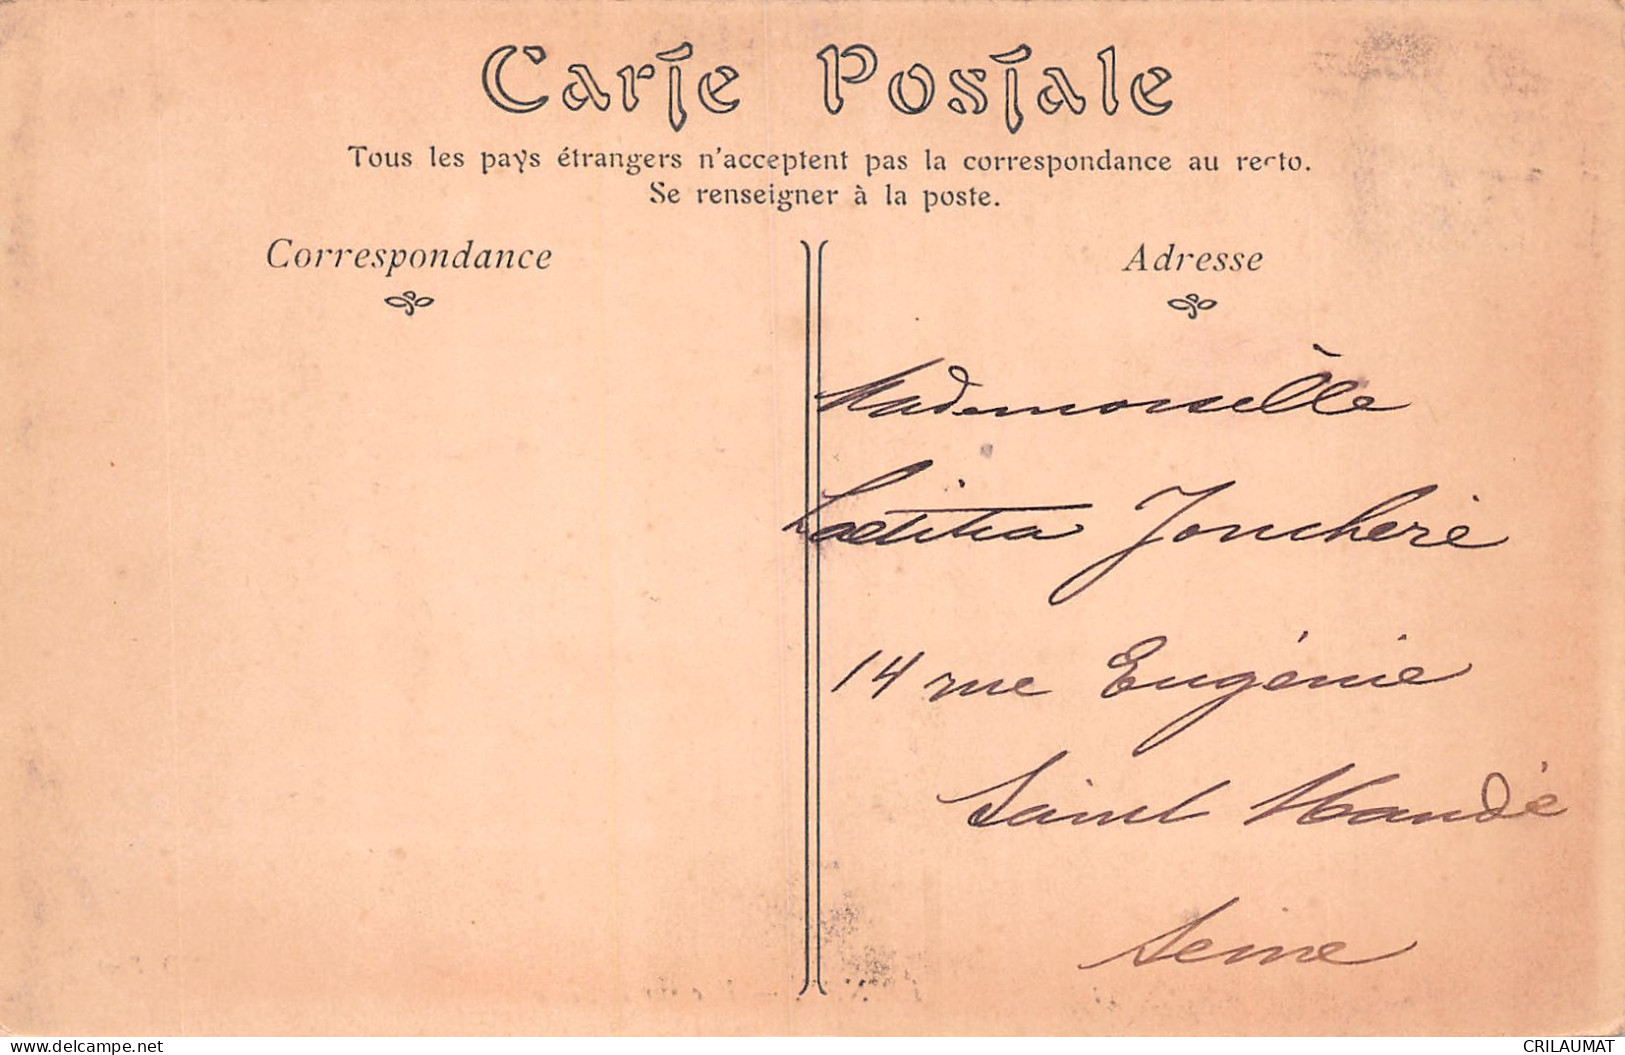 Carte Postale
Tous les pays étrangers n'acceptent pas la correspondance au recto.
Se renseigner à la poste.
Correspondance
Adresse
Mademoiselle
Laetitia Joucherie
14 rue Eugénie
Saint Mandé
Seine
www.delcampe.net
CRILAUMAT